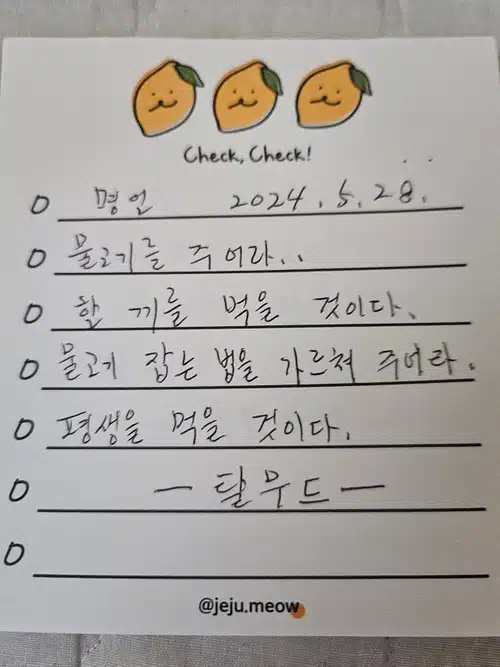 Check, Check!
명언 2024. 5. 28.
물고기를 주어라..
한 끼를 먹을 것이다.
물고기 잡는 법을 가르쳐 주어라.
평생을 먹을 것이다.
— 탈무드 —
@jeju.meow